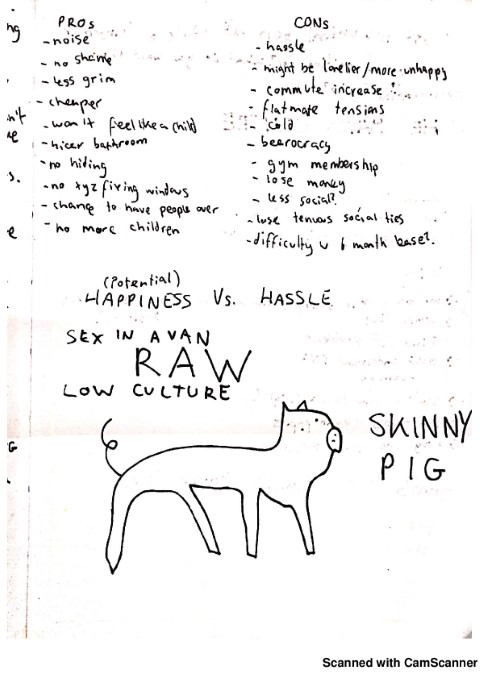 ng
n't
s.
e
G
PROS
- noise
- no shame
- less grim
- cheaper
- won't feel like a child
- nicer bathroom
- no hiding
- no xyz fixing windows
- chance to have people over
- no more children
CONs
- hassle
- might be lonelier/more unhappy
- commute increase!
- flatmate tensions
- cold
- bearocracy
- gym membership
- lose money
- less social?
- lose tenuous social ties
- difficulty w 6 month base?
(Potential)
HAPPINESS Vs. HASSLE
SEX IN A VAN
RAW
LOW CULTURE
SKINNY
PIG
Scanned with CamScanner